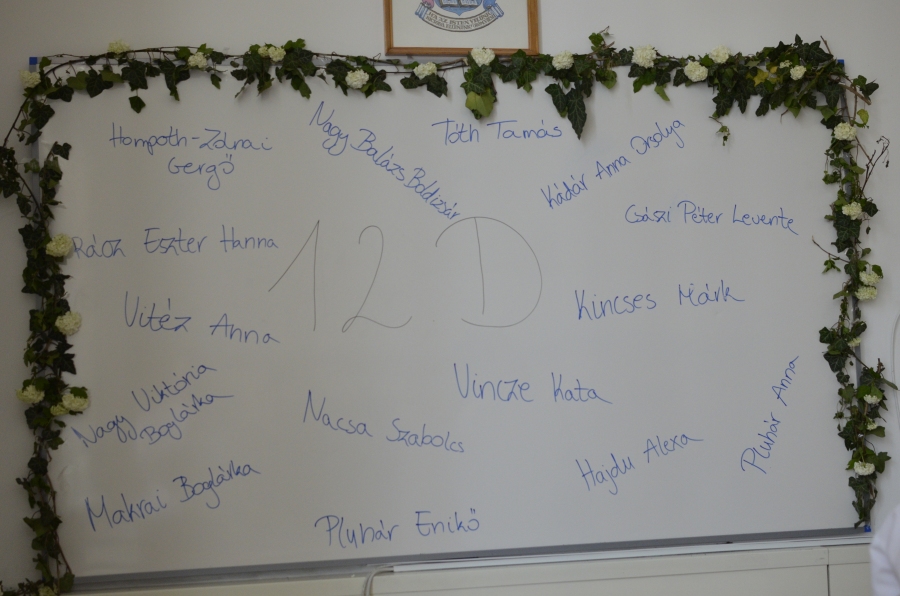 Hompoth-Zdrai
Gergő
Nagy Balázs Boldizsár
Tóth Tamás
Kádár Anna Orsolya
Császi Péter Levente
Rácz Eszter Hanna
12. D
Kincses Márk
Vitéz Anna
Nagy Viktória
Boglárka
Nacsa Szabolcs
Vincze Kata
Pluhár Anna
Hajdu Alexa
Makrai Boglárka
Pluhár Enikő